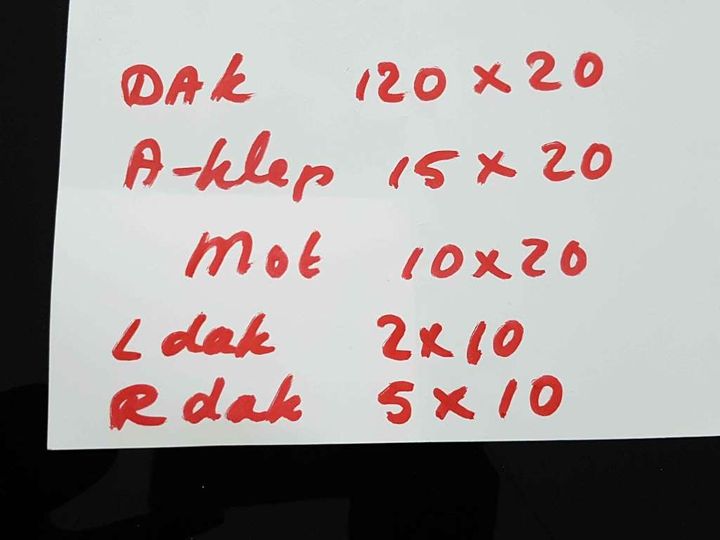 DAK 120 x 20
A-klep 15 x 20
Mot 10 x 20
L dak 2 x 10
R dak 5 x 10